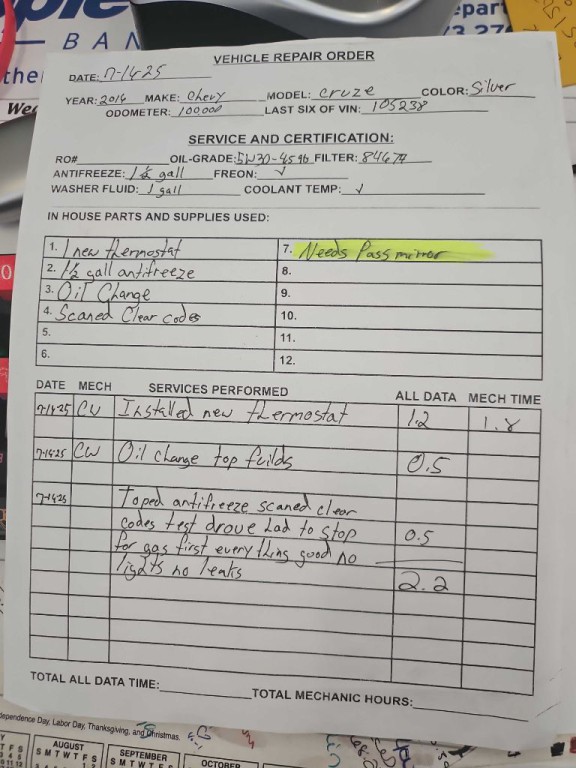 BAN
VEHICLE REPAIR ORDER
DATE: 7-14-25
YEAR: 2016 MAKE: Chevy MODEL: Cruze COLOR: Silver
ODOMETER: 100,000 LAST SIX OF VIN: 105238
SERVICE AND CERTIFICATION:
RO# OIL-GRADE: 5W30-4.5qt FILTER: 84674
ANTIFREEZE: 1½ gall FREON: ✓
WASHER FLUID: 1 gall COOLANT TEMP: ✓
IN HOUSE PARTS AND SUPPLIES USED:
1. 1 new thermostat 7. Needs Pass mirror
2. 1½ gall antifreeze 8.
3. Oil Change 9.
4. Scaned Clear codes 10.
5. 11.
6. 12.
DATE MECH SERVICES PERFORMED ALL DATA MECH TIME
7-14-25 CW Installed new thermostat 1.2 1.8
7-14-25 CW Oil change top fuilds 0.5
7-14-25 Toped antifreeze scaned clear
codes test drove had to stop 0.5
for gas first every thing good no
lights no leaks 2.2
TOTAL ALL DATA TIME: TOTAL MECHANIC HOURS:
ependence Day, Labor Day, Thanksgiving, and Christmas.
AUGUST SEPTEMBER OCTOBER
S M T W T F S S M T W T F S